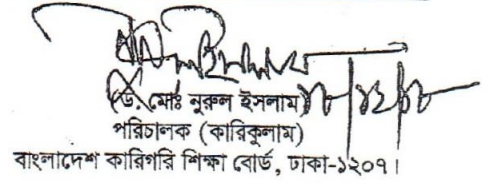 ড. মোঃ নুরুল ইসলাম
পরিচালক (কারিকুলাম)
বাংলাদেশ কারিগরি শিক্ষা বোর্ড, ঢাকা-১২০৭।